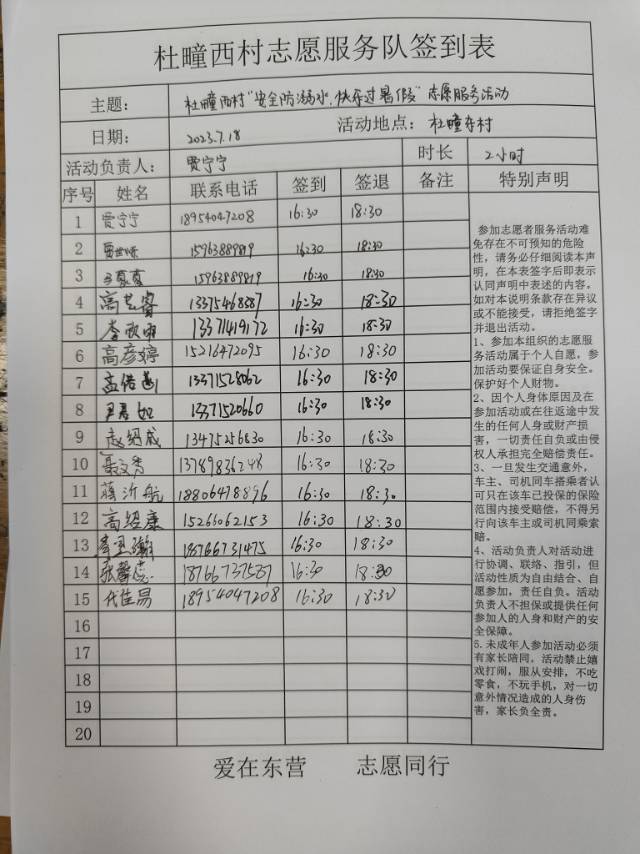 杜疃西村志愿服务队签到表
主题： 杜疃西村“安全防溺水，快乐过暑假”志愿服务活动
日期： 2023.7.18 活动地点： 杜疃西村
活动负责人： 贾宁宁 时长 2小时
序号 姓名 联系电话 签到 签退 备注 特别声明
1 贾宁宁 18954047208 16:30 18:30
2 15963889819 16:30 18:30
3 15963889819 16:30 18:30
4 高艺睿 13375468587 16:30 18:30
5 13371419172 16:30 18:30
6 高彦婷 15216472095 16:30 18:30
7 孟倩 13371528062 16:30 18:30
8 尹君如 13371520660 16:30 18:30
9 赵绍成 13475256830 16:30 18:30
10 聂文秀 13789836248 16:30 18:30
11 薛沂航 18806478896 16:30 18:30
12 高绍康 15266062153 16:30 18:30
13 18766731475 16:30 18:30
14 张馨 18766737587 16:30 18:30
15 代佳易 18954047208 16:30 18:30
16
17
18
19
20
参加志愿者服务活动难
免存在不可预知的危险
性，请务必仔细阅读本声
明，在本表签字后即表示
认同声明中表述的内容。
如对本说明条款存在异议
或不能接受，请拒绝签字
并退出活动。
1、参加本组织的志愿服
务活动属于个人自愿，参
加活动要保证自身安全。
保护好个人财物。
2、因个人身体原因及在
参加活动或在往返途中发
生的任何人身或财产损
害，一切责任自负或由侵
权人承担完全赔偿责任。
3、一旦发生交通意外，
车主、司机同车搭乘者认
可只在该车已投保的保险
范围内接受赔偿，不得另
行向该车主或司机同乘索
赔。
4、活动负责人对活动进
行协调、联络、指引，但
活动性质为自由结合、自
愿参加，责任自负。活动
负责人不担保或提供任何
参加人的人身和财产的安
全保障。
5.未成年人参加活动必须
有家长陪同。活动禁止嬉
戏打闹，服从安排，不吃
零食，不玩手机，对一切
意外情况造成的人身伤
害，家长负全责。
爱在东营 志愿同行